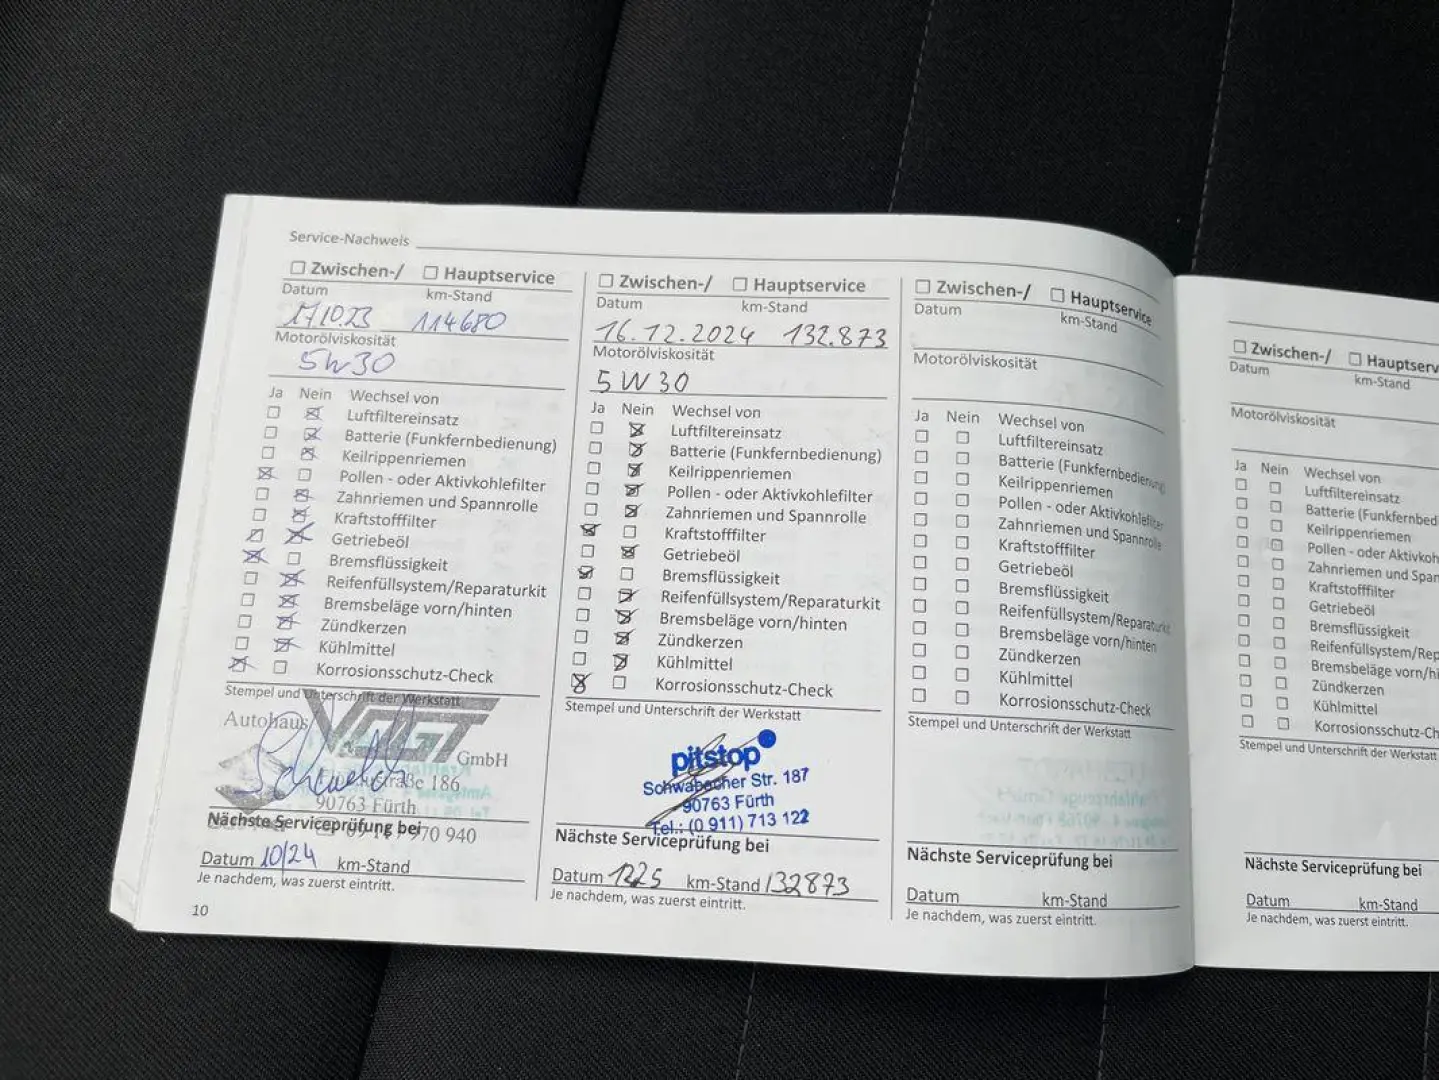 Service-Nachweis
☐ Zwischen-/ ☐ Hauptservice
Datum km-Stand
17.10.23 114680
Motorölviskosität
5W30
Ja Nein Wechsel von
☐ ☒ Luftfiltereinsatz
☐ ☒ Batterie (Funkfernbedienung)
☐ ☒ Keilrippenriemen
☒ ☐ Pollen - oder Aktivkohlefilter
☐ ☒ Zahnriemen und Spannrolle
☐ ☒ Kraftstofffilter
☒ ☒ Getriebeöl
☒ ☐ Bremsflüssigkeit
☐ ☒ Reifenfüllsystem/Reparaturkit
☐ ☒ Bremsbeläge vorn/hinten
☐ ☒ Zündkerzen
☐ ☒ Kühlmittel
☒ ☐ Korrosionsschutz-Check
Stempel und Unterschrift der Werkstatt
Autohaus VOGT GmbH
186
90763 Fürth
970 940
Nächste Serviceprüfung bei
Datum 10/24 km-Stand
Je nachdem, was zuerst eintritt.
10
☐ Zwischen-/ ☐ Hauptservice
Datum km-Stand
16.12.2024 132.873
Motorölviskosität
5W30
Ja Nein Wechsel von
☐ ☒ Luftfiltereinsatz
☐ ☒ Batterie (Funkfernbedienung)
☐ ☒ Keilrippenriemen
☐ ☒ Pollen - oder Aktivkohlefilter
☐ ☒ Zahnriemen und Spannrolle
☒ ☐ Kraftstofffilter
☐ ☒ Getriebeöl
☒ ☐ Bremsflüssigkeit
☐ ☒ Reifenfüllsystem/Reparaturkit
☐ ☒ Bremsbeläge vorn/hinten
☐ ☒ Zündkerzen
☐ ☒ Kühlmittel
☒ ☐ Korrosionsschutz-Check
Stempel und Unterschrift der Werkstatt
pitstop
Schwabacher Str. 187
90763 Fürth
Tel.: (0 911) 713 122
Nächste Serviceprüfung bei
Datum 1225 km-Stand 132873
Je nachdem, was zuerst eintritt.
☐ Zwischen-/ ☐ Hauptservice
Datum km-Stand
Motorölviskosität
Ja Nein Wechsel von
☐ ☐ Luftfiltereinsatz
☐ ☐ Batterie (Funkfernbedienung)
☐ ☐ Keilrippenriemen
☐ ☐ Pollen - oder Aktivkohlefilter
☐ ☐ Zahnriemen und Spannrolle
☐ ☐ Kraftstofffilter
☐ ☐ Getriebeöl
☐ ☐ Bremsflüssigkeit
☐ ☐ Reifenfüllsystem/Reparaturkit
☐ ☐ Bremsbeläge vorn/hinten
☐ ☐ Zündkerzen
☐ ☐ Kühlmittel
☐ ☐ Korrosionsschutz-Check
Stempel und Unterschrift der Werkstatt
Nächste Serviceprüfung bei
Datum km-Stand
Je nachdem, was zuerst eintritt.
☐ Zwischen-/ ☐ Hauptserv
Datum km-Stand
Motorölviskosität
Ja Nein Wechsel von
☐ ☐ Luftfiltereinsatz
☐ ☐ Batterie (Funkfernbed
☐ ☐ Keilrippenriemen
☐ ☐ Pollen - oder Aktivkoh
☐ ☐ Zahnriemen und Span
☐ ☐ Kraftstofffilter
☐ ☐ Getriebeöl
☐ ☐ Bremsflüssigkeit
☐ ☐ Reifenfüllsystem/Rep
☐ ☐ Bremsbeläge vorn/hi
☐ ☐ Zündkerzen
☐ ☐ Kühlmittel
☐ ☐ Korrosionsschutz-Ch
Stempel und Unterschrift der Werkstatt
Nächste Serviceprüfung bei
Datum km-Stand
Je nachdem, was zuerst eintritt.